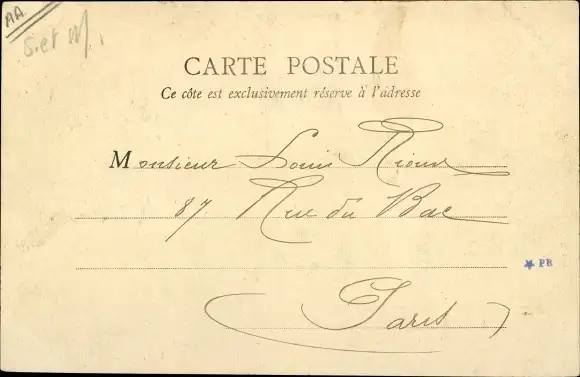 AA
S. et M.
CARTE POSTALE
Ce côte est exclusivement réserve à l'adresse
Monsieur Louis Rioux
87 Rue du Bac
PB
Paris